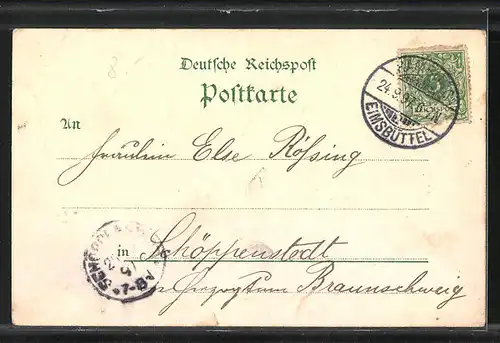 Deutsche Reichspost
Postkarte
An
Fräulein Else Rößing
in Schöppenstedt
Herzogtum Braunschweig
24.9.
EIMSBÜTTEL
*7-8V